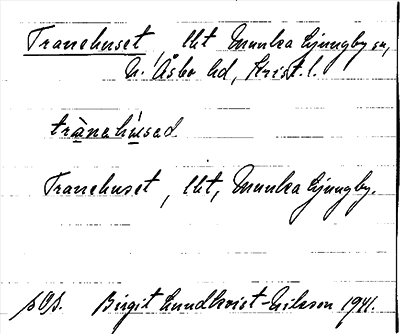 Tranehuset, lht Munka Ljungby sn,
N. Åsbo hd, Krist. l.
trànehúsad
Tranehuset, lht, Munka Ljungby.
pOp. Birgit Lundkvist-Nilsson 1941.